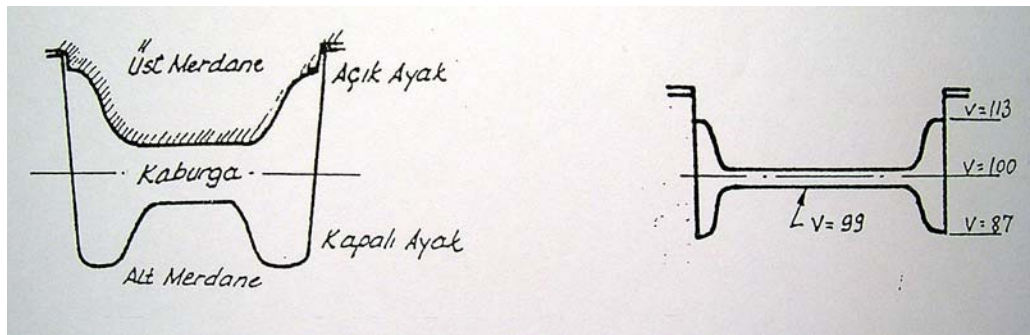 Üst Merdane
Açık Ayak
Kaburga
Kapalı Ayak
Alt Merdane
V=113
V=100
V=99
V=87